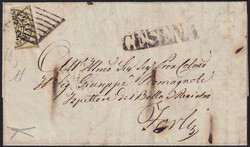 CESENA
All'Illmo Sig. Sig. Pron Colmo
Il Sig. Giuseppe Romagnoli
Ispettore del Bollo e Registro
Forlì